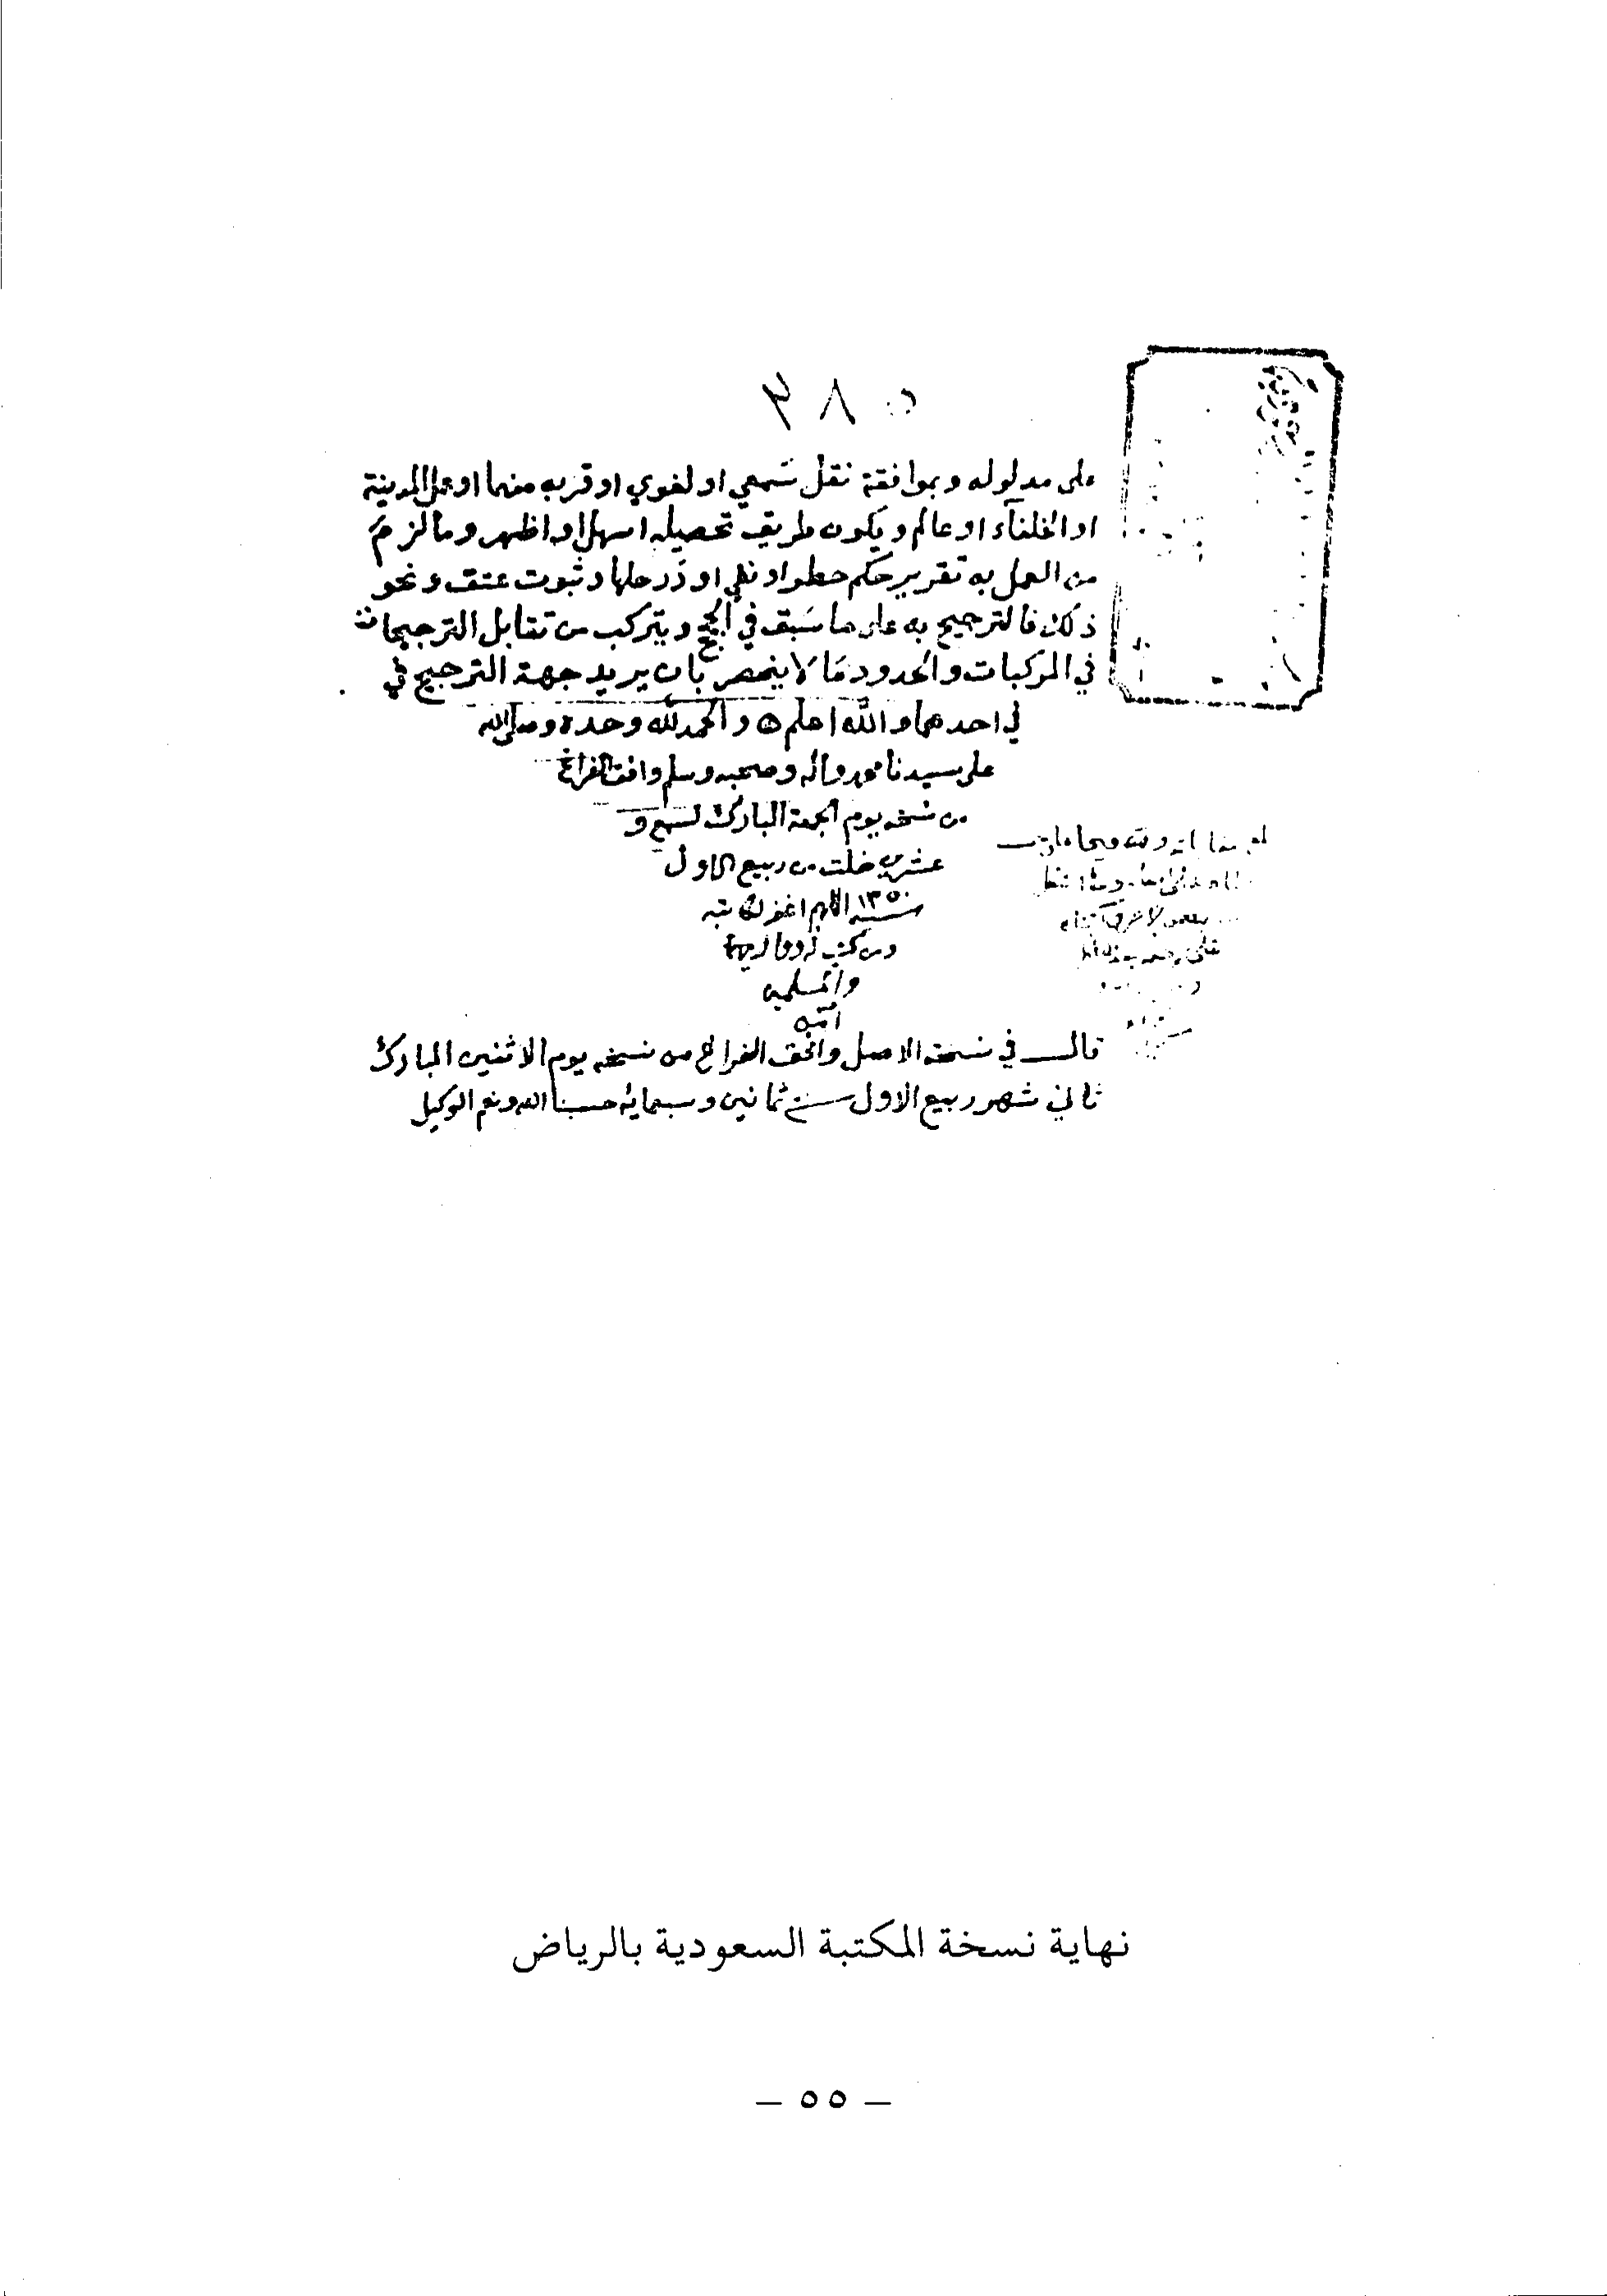 ٣٨٥
على مدلوله وبموافقة نقل سمعي او لغوي او قربه منهما او عمل المدينة
او الخلفآء او عالم ويكون طريق تحصيله اسهل او اظهر وما لزم
من العمل به تقرير حكم حظر او نفي او درء حد او ثبوت عتق ونحو
ذلك فالترجيح به على ما سبق في الحجج ويتركب من تقابل الترجيحات
في المركبات والحدود ما لا ينحصر بان يريد جهة الترجيح في
في احدهما والله اعلم ه والحمد لله وحده وصلى الله
على سيدنا محمد واله وصحبه وسلم وافق الفراغ
من نسخه يوم الجمعة المبارك لسبع و
عشرين خلت من ربيع الاول
سنة ١٣٥٠ اللهم اغفر لكاتبه
ومن كتب له ووالديهما
والمسلمين
امين
قال في نسخة الاصل وافق الفراغ من نسخه يوم الاثنين المبارك
ثاني شهر ربيع الاول سنة ثمانين وسبعماية حسبنا الله ونعم الوكيل
نهاية نسخة المكتبة السعودية بالرياض
— ٥٥ —